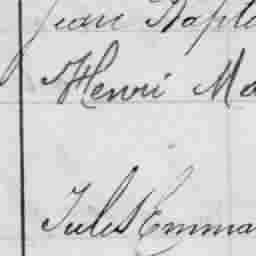 Jean Bapt
Henri Ma
Jules Emma